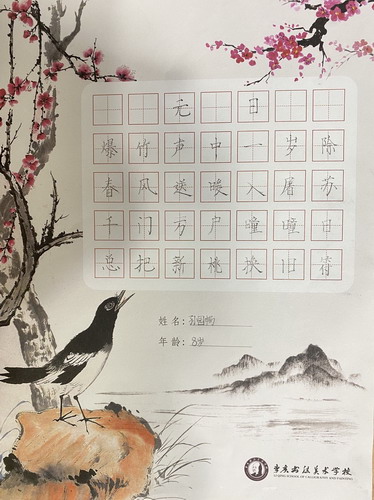 元日
爆竹声中一岁除
春风送暖入屠苏
千门万户曈曈日
总把新桃换旧符
姓名:
年龄: 8岁
书法美术学校